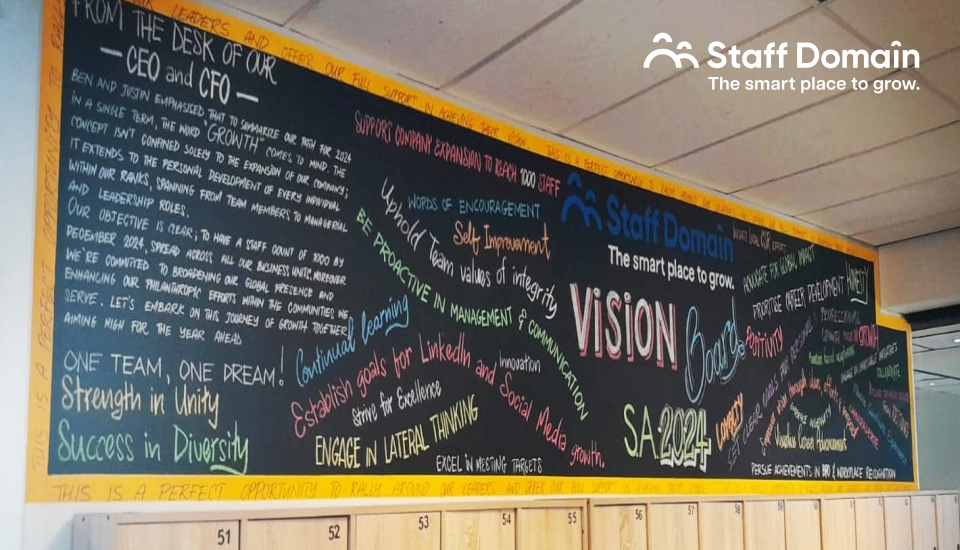 Staff Domain
The smart place to grow.
LEADERS AND OFFER OUR FULL SUPPORT IN ACHIEVING THEIR VISION. THIS IS A PERFECT OPPORTUNITY TO RALLY AROUND OUR LEADERS
FROM THE DESK OF OUR
— CEO and CFO —
BEN AND JUSTIN EMPHASISED THAT TO SUMMARIZE OUR PATH FOR 2024
IN A SINGLE TERM, THE WORD "GROWTH" COMES TO MIND. THE
CONCEPT ISN'T CONFINED SOLELY TO THE EXPANSION OF OUR COMPANY;
IT EXTENDS TO THE PERSONAL DEVELOPMENT OF EVERY INDIVIDUAL
WITHIN OUR RANKS, SPANNING FROM TEAM MEMBERS TO MANAGERIAL
AND LEADERSHIP ROLES.
OUR OBJECTIVE IS CLEAR; TO HAVE A STAFF COUNT OF 1000 BY
DECEMBER 2024, SPREAD ACROSS ALL OUR BUSINESS UNITS. MOREOVER
WE'RE COMMITTED TO BROADENING OUR GLOBAL PRESENCE AND
ENHANCING OUR PHILANTHROPIC EFFORTS WITHIN THE COMMUNITIES WE
SERVE. LET'S EMBARK ON THIS JOURNEY OF GROWTH TOGETHER,
AIMING HIGH FOR THE YEAR AHEAD
ONE TEAM, ONE DREAM!
Strength in Unity
Success in Diversity
SUPPORT COMPANY EXPANSION TO REACH 1000 STAFF
WORDS OF ENCOURAGEMENT
Self Improvement
Uphold Team values of integrity
BE PROACTIVE IN MANAGEMENT & COMMUNICATION
Continual learning
Establish goals for LinkedIn and Social Media growth.
Innovation
Strive for Excellence
ENGAGE IN LATERAL THINKING
EXCEL IN MEETING TARGETS
Staff Domain
The smart place to grow.
VISION
Board
SA 2024
ADVOCATE FOR GLOBAL IMPACT
HONESTY
PRIORITISE CAREER DEVELOPMENT
POSITIVITY
LOYALTY
PERSUE ACHIEVEMENTS IN BRO & WORKPLACE RECOGNITION
THIS IS A PERFECT OPPORTUNITY TO RALLY AROUND OUR LEADERS AND OFFER OUR FULL SUPPORT
THIS IS A PERFECT OPPORTUNITY TO
51
52
53
54
55
56
57
58
59